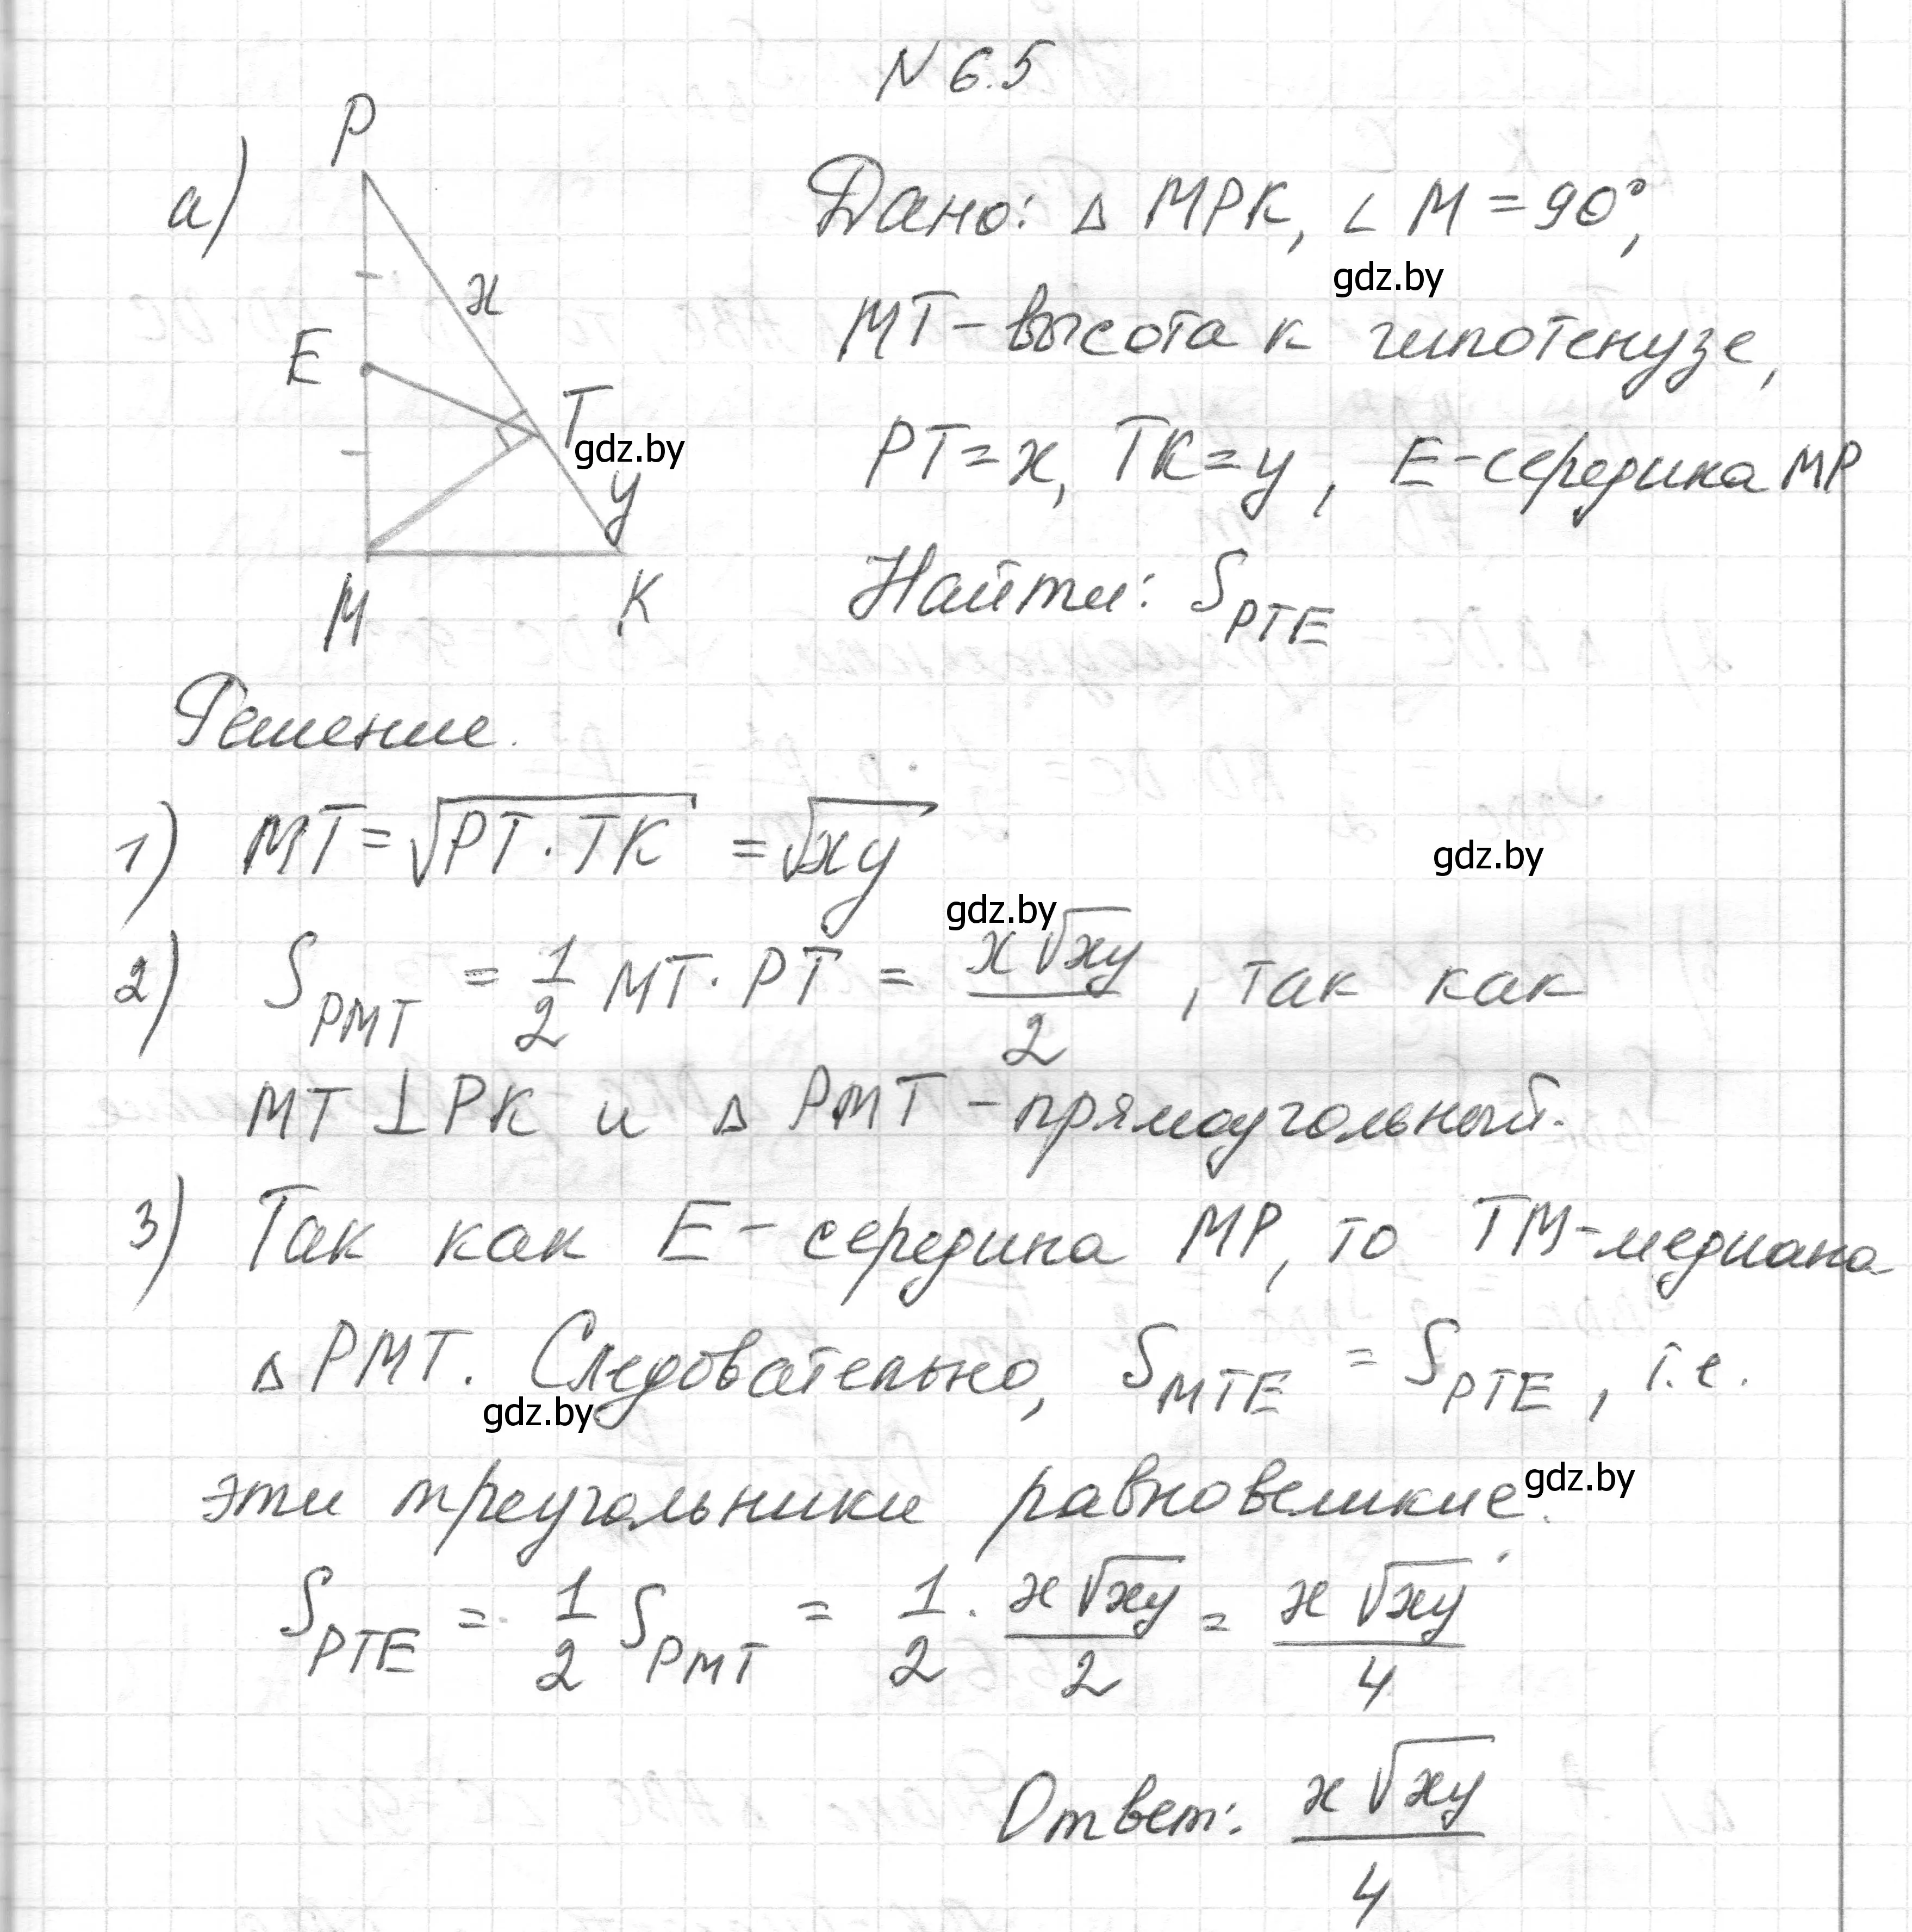 N 6.5
а)
P
x
E
T
y
M
K
Дано: △ MPK, ∠ M = 90°,
gdz.by
MT - высота к гипотенузе,
gdz.by
PT = x, TK = y, E - середина MP
Найти: S_PTE
Решение.
1) MT = √(PT · TK) = √(xy)
gdz.by
gdz.by
2) S_PMT = 1/2 MT · PT = x√(xy)/2, так как
MT ⊥ PK и △ PMT - прямоугольный.
3) Так как E - середина MP, то TM - медиана
△ PMT. Следовательно, S_MTE = S_PTE, т.е.
gdz.by
эти треугольники равновеликие.
gdz.by
S_PTE = 1/2 S_PMT = 1/2 · x√(xy)/2 = x√(xy)/4
Ответ: x√(xy)/4